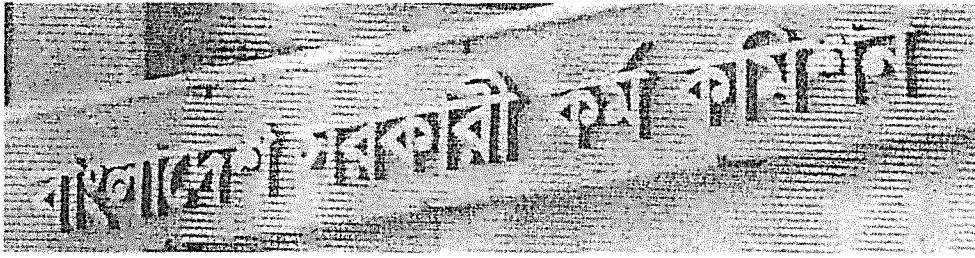 বাংলাদেশ সরকারী কর্ম কমিশন